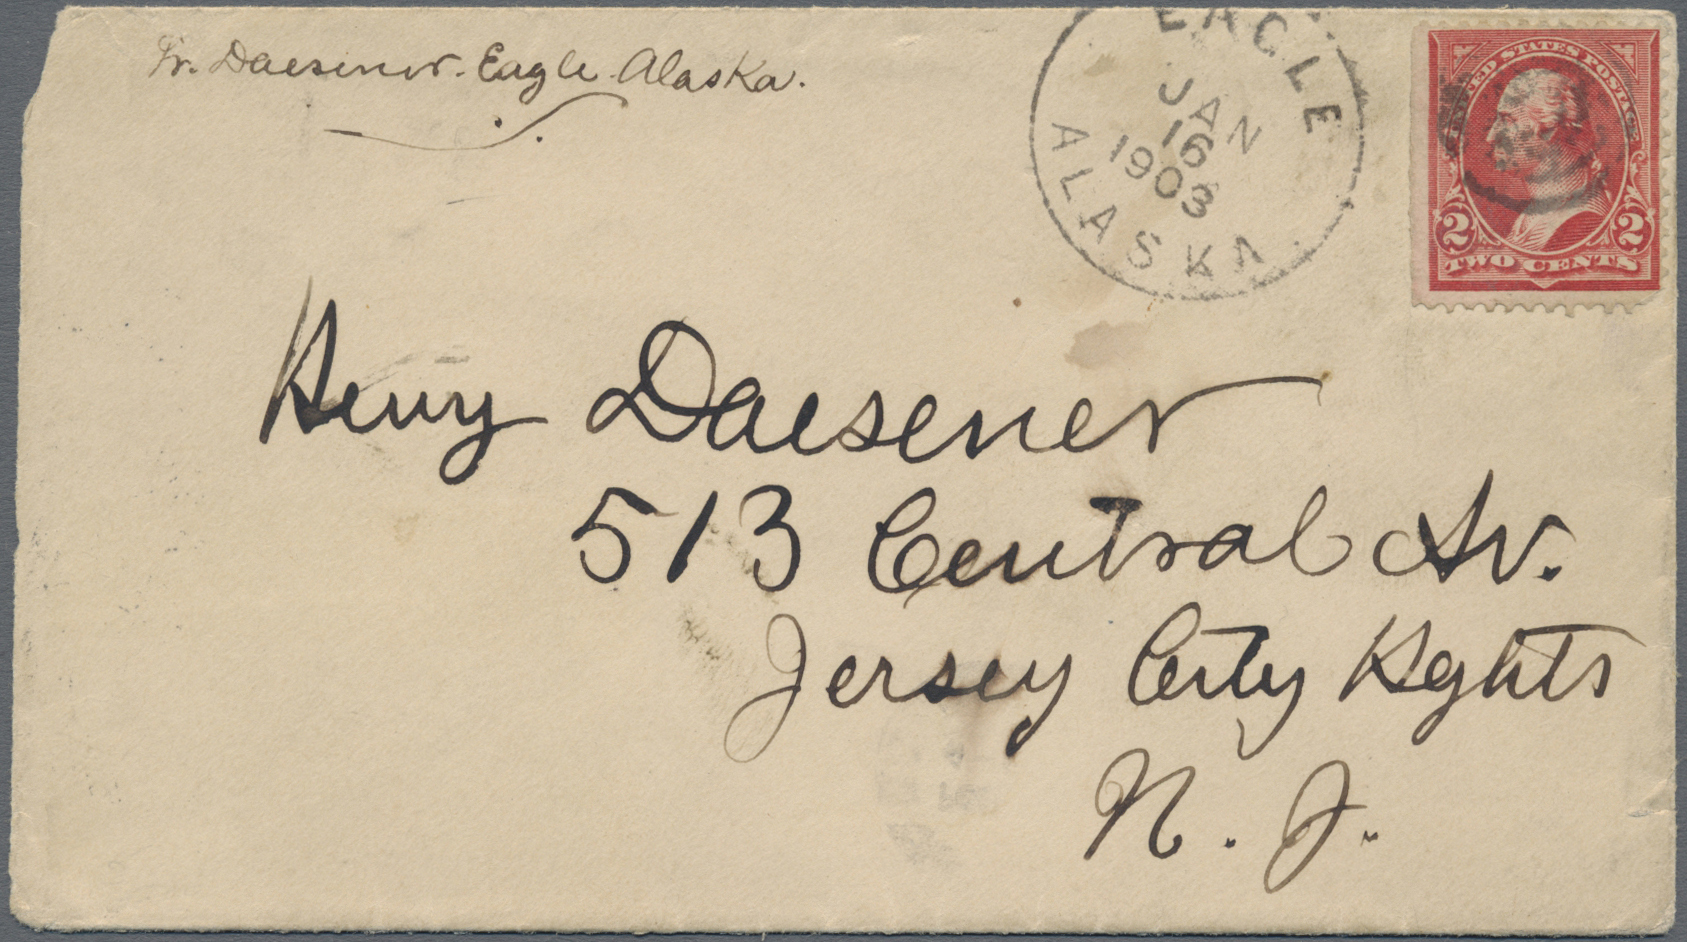 Fr. Daesener. Eagle. Alaska.
EAGLE
JAN
16
1903
ALASKA
UNITED STATES POSTAGE
2 2
TWO CENTS
Henry Daesener
513 Central Av.
Jersey City Hghts
N. J.